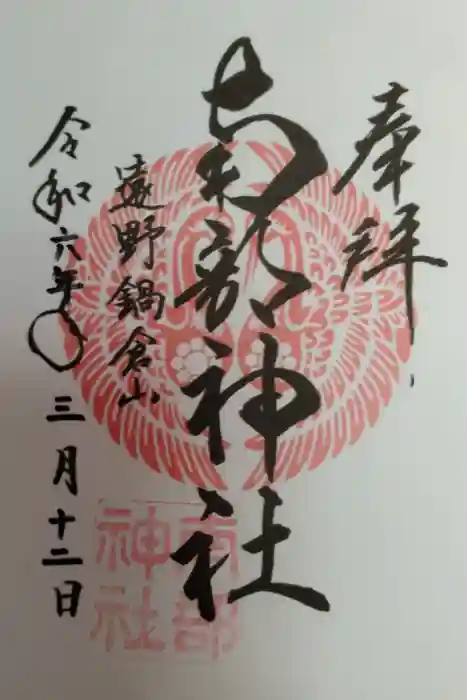 奉拝
南部神社
遠野鍋倉山
令和六年〇三月十二日
南部
神社